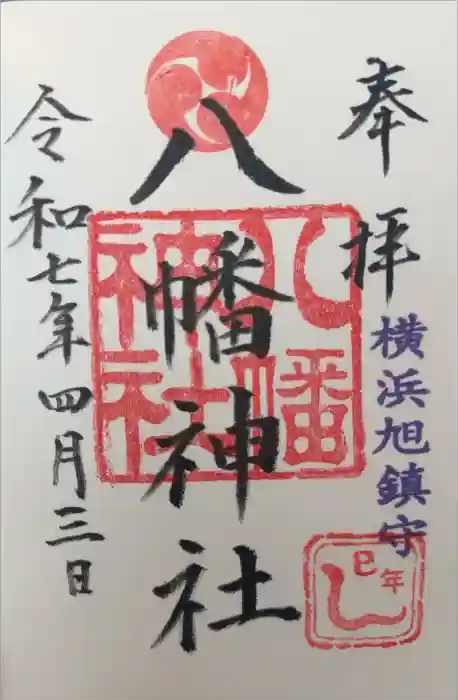 奉拝
横浜旭鎮守
八幡神社
八幡神社
巳年
令和七年四月三日